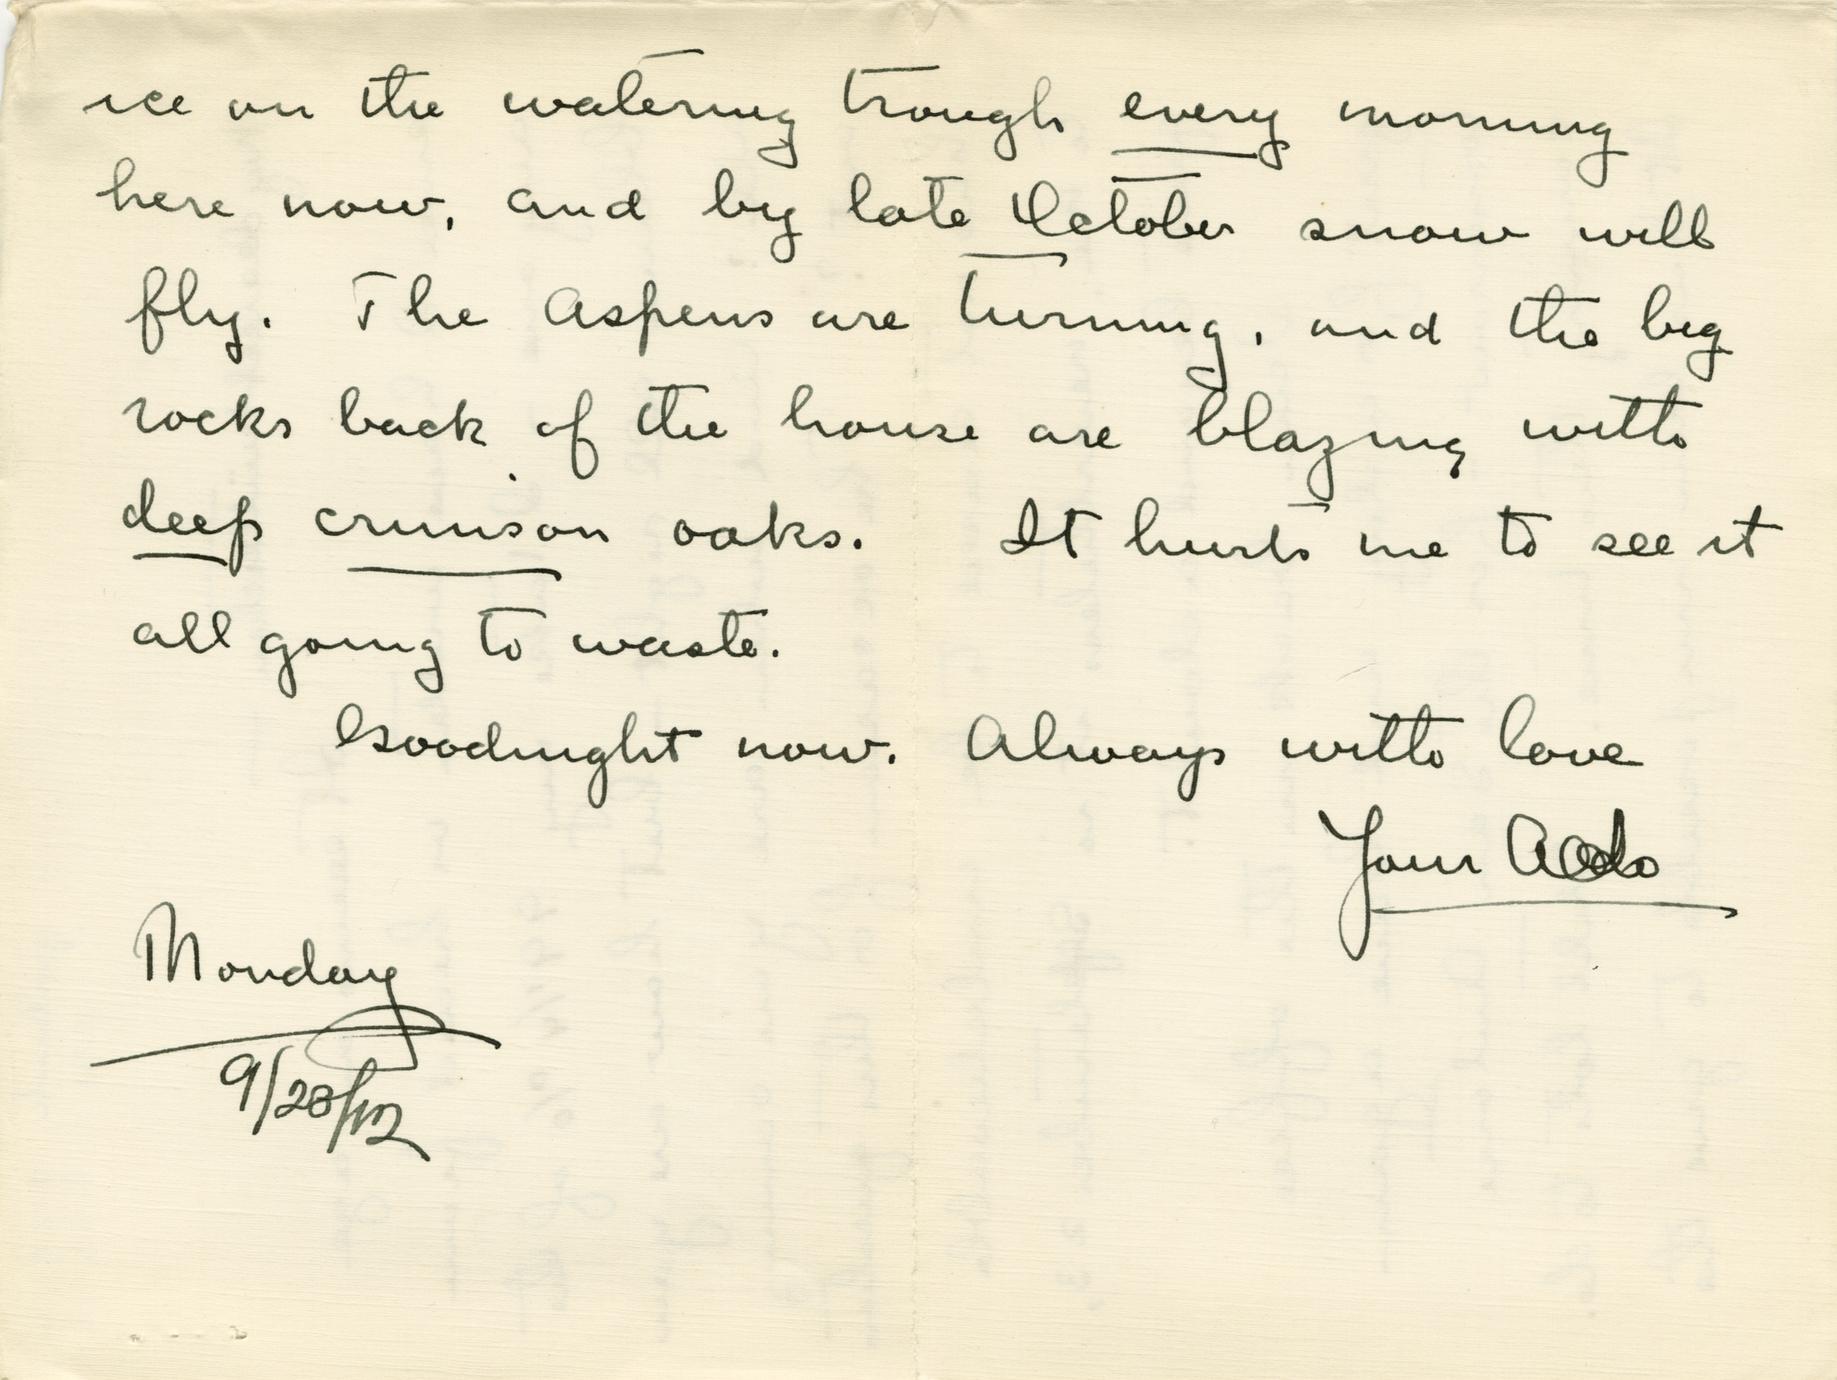 ice on the watering trough every morning
here now, and by late October snow will
fly. The Aspens are turning, and the big
rocks back of the house are blazing with
deep crimson oaks. It hurts me to see it
all going to waste.
Goodnight now. Always with love
Your Aldo
Monday
9/23/12